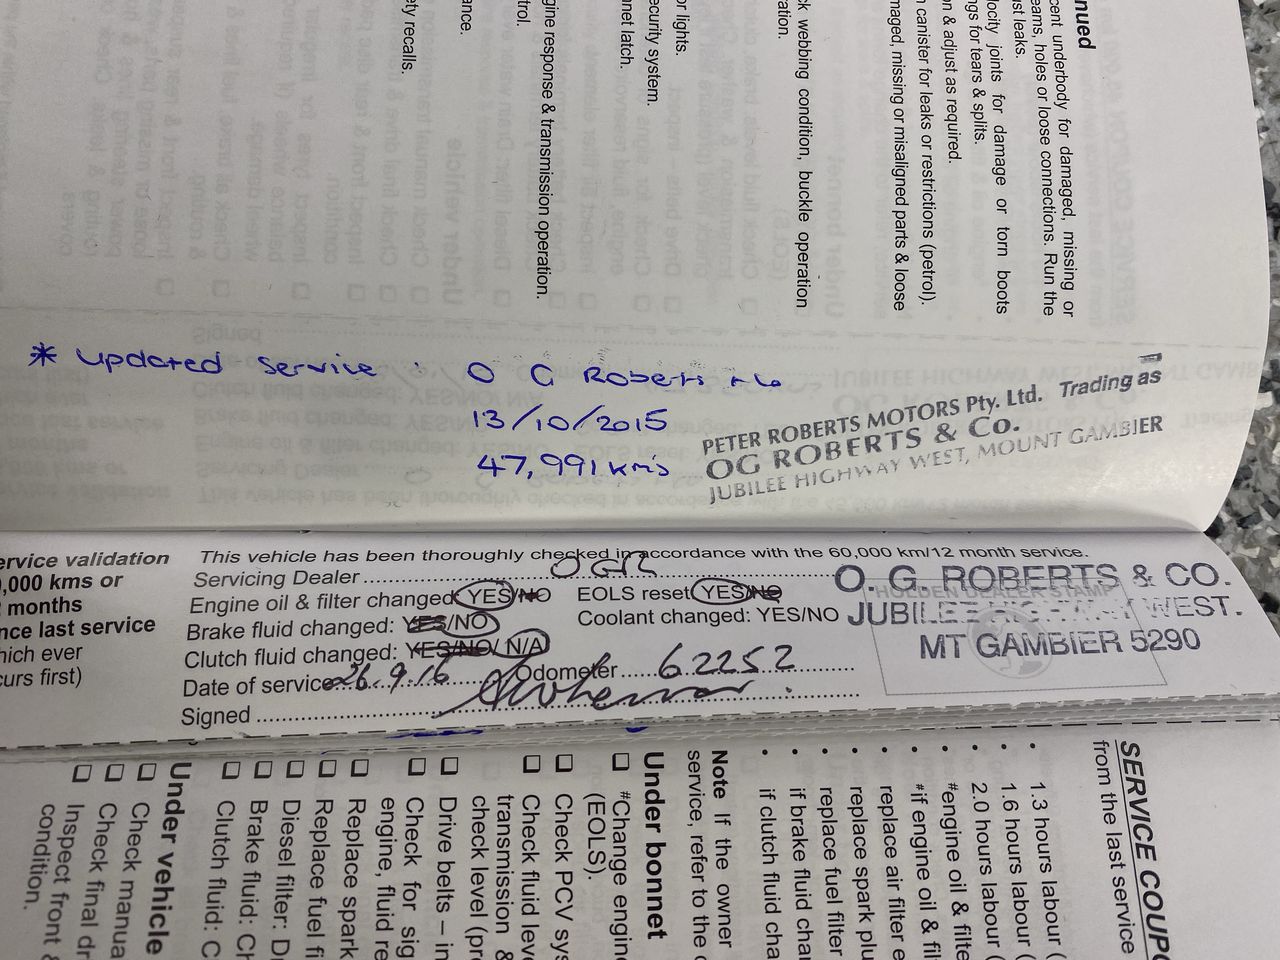 nued
cent underbody for damaged, missing or
eams, holes or loose connections. Run the
ust leaks.
locity joints for damage or torn boots
ngs for tears & splits.
n & adjust as required.
n canister for leaks or restrictions (petrol).
maged, missing or misaligned parts & loose
ck webbing condition, buckle operation
ration.
or lights.
ecurity system.
net latch.
gine response & transmission operation.
trol.
ance.
ety recalls.
* updated service : O G Roberts
13/10/2015
47,991 km's
PETER ROBERTS MOTORS Pty. Ltd. Trading as
OG ROBERTS & Co.
JUBILEE HIGHWAY WEST, MOUNT GAMBIER
ervice validation
,000 kms or
months
nce last service
hich ever
curs first)
This vehicle has been thoroughly checked in accordance with the 60,000 km/12 month service.
Servicing Dealer OGR
Engine oil & filter changed: YES/NO EOLS reset: YES/NO
Brake fluid changed: YES/NO Coolant changed: YES/NO
Clutch fluid changed: YES/NO/ N/A
Date of service 26.9.16 Odometer 62252
Signed
HOLDEN DEALER STAMP
O. G. ROBERTS & CO.
JUBILEE HIGHWAY WEST.
MT GAMBIER 5290
SERVICE COUPO
from the last service
• 1.3 hours labour (
• 1.6 hours labour (
• 2.0 hours labour (
• #engine oil & filte
• #if engine oil & fil
• replace air filter e
• replace spark plu
• replace fuel filter
• if brake fluid char
• if clutch fluid cha
Note If the owner
service, refer to the
Under bonnet
☐ #Change engin
(EOLS).
☐ Check PCV sys
☐ Check fluid leve
transmission &
check level (pre
☐ Drive belts – in
☐ Check for sig
engine, fluid re
☐ Replace spark
☐ Replace fuel fi
☐ Diesel filter: D
☐ Brake fluid: Ch
☐ Clutch fluid: C
Under vehicle
☐ Check manua
☐ Check final dr
☐ Inspect front &
condition.